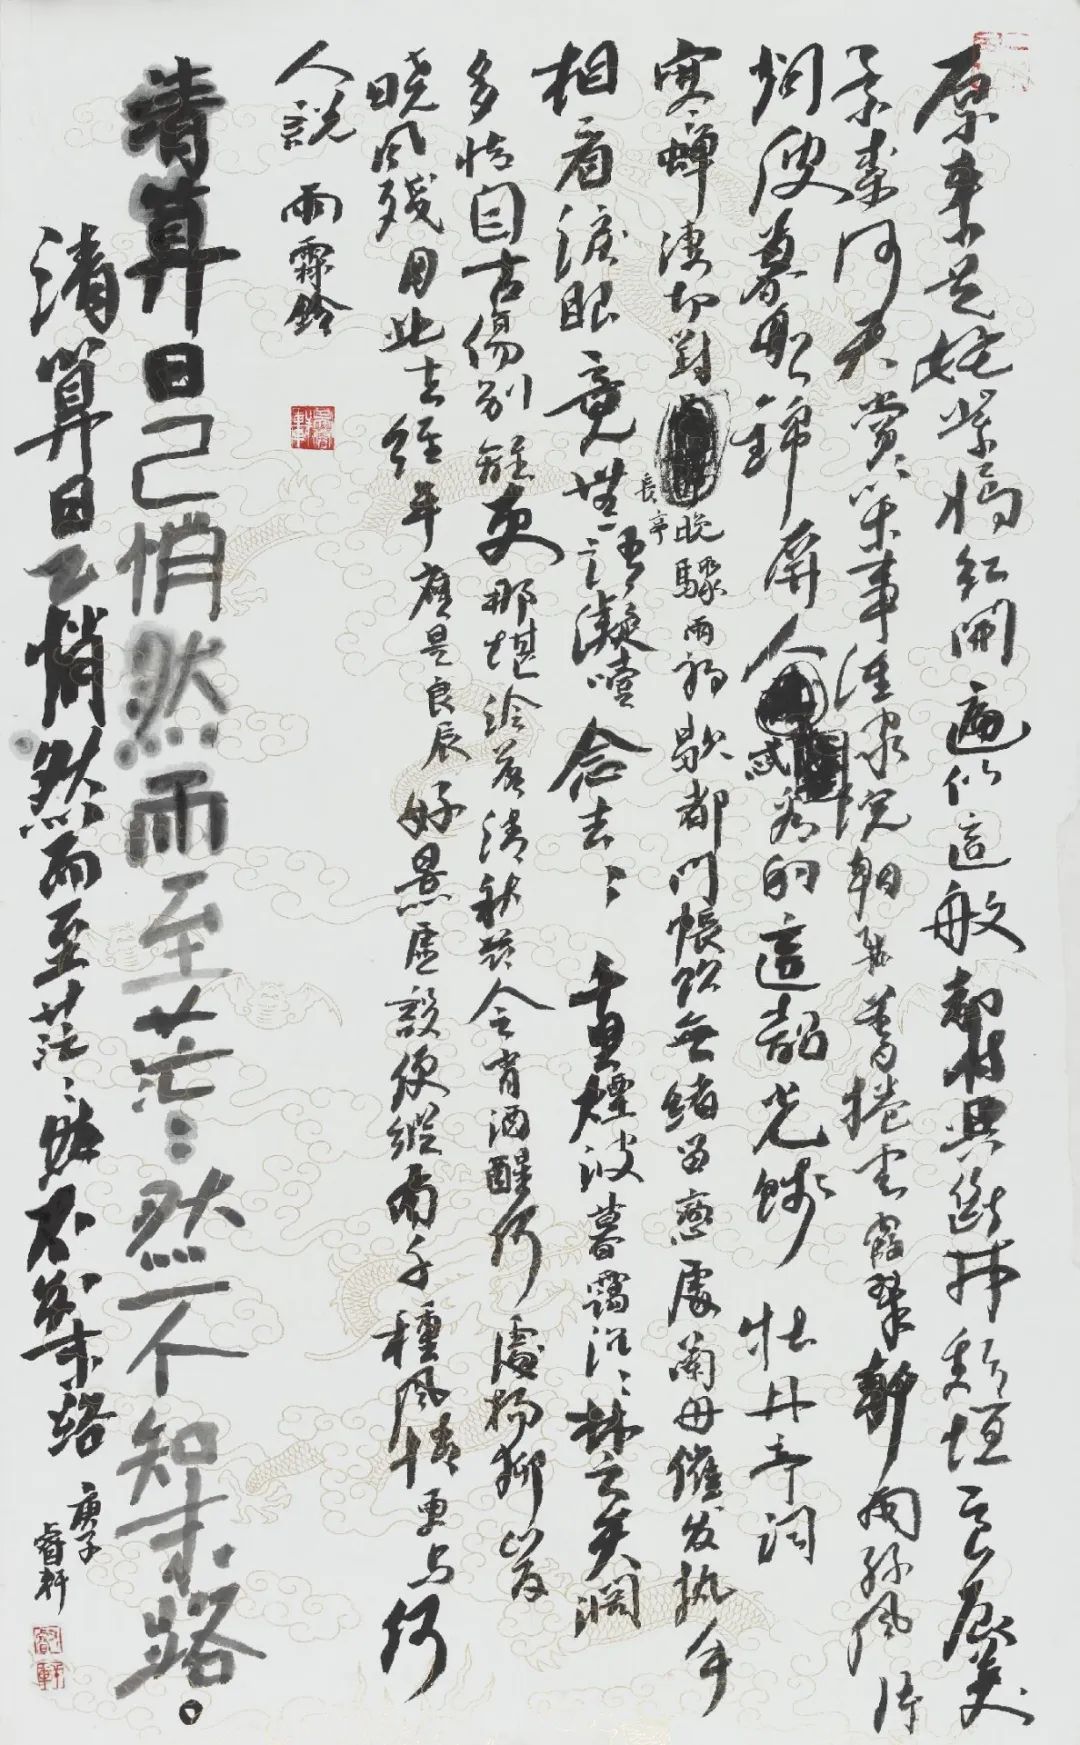 原来是姹紫嫣紅開遍似這般都付與斷井頹垣良辰美
景奈何天賞心樂事誰家院朝飛暮捲雲霞翠軒雨絲風片
烟波畫船錦屏人忒看的這韶光賤 牡丹亭詞
寒蟬淒切對長亭晚驟雨初歇都門帳飲無緒留戀處蘭舟催发執手
相看淚眼竟無語凝噎念去々千里煙波暮靄沉々楚天闊
多情自古傷別離更那堪冷落清秋節今宵酒醒何處楊柳岸
曉風殘月此去經年應是良辰好景虛設便縱有千種風情更与何
人說 雨霖鈴
清算日己悄然而至茫々然不知末路。
清算日已悄然而至茫々然不知末路
庚子
睿軒